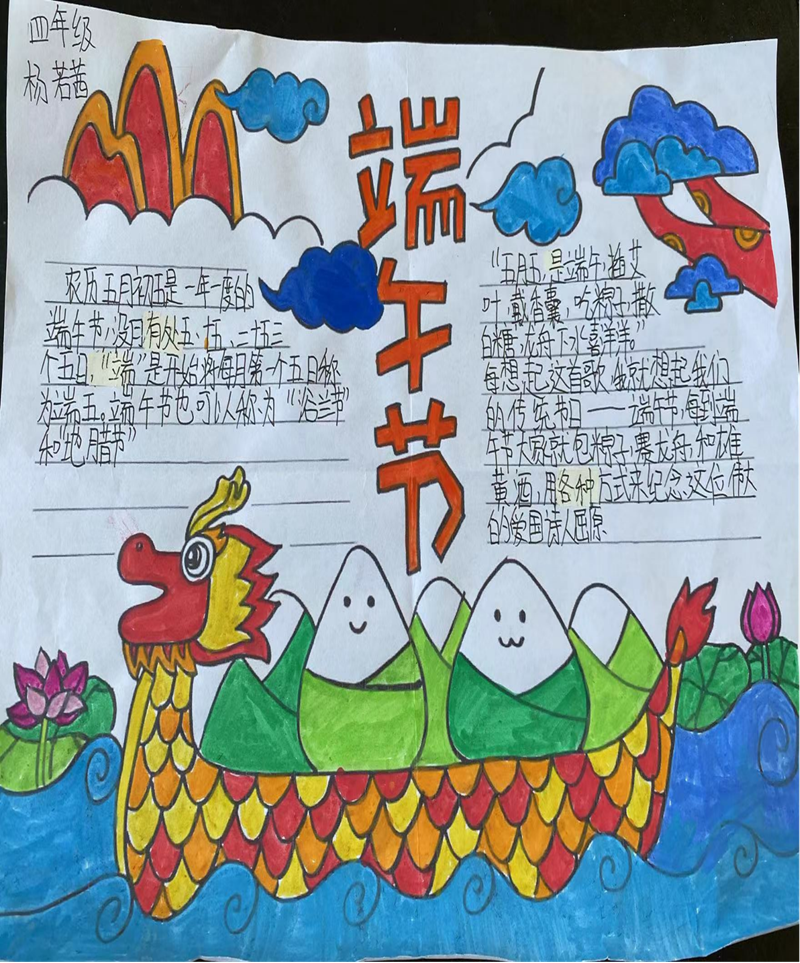 四年级
杨若茜
端午节
农历五月初五是一年一度的
端午节,没日有处五、十五、二十五三
个五日,“端”是开始将每月第一个五日称
为端五。端午节也可以称为“浴兰节”
和“地腊节”
“五月五,是端午,插艾
叶,戴香囊,吃粽子,撒
白糖,龙舟下水喜洋洋。”
每想起这首歌,我就想起我们
的传统节日——端午节,每到端
午节大家就包粽子,赛龙舟,和雄
黄酒,用各种方式来纪念这位伟大
的爱国诗人屈原